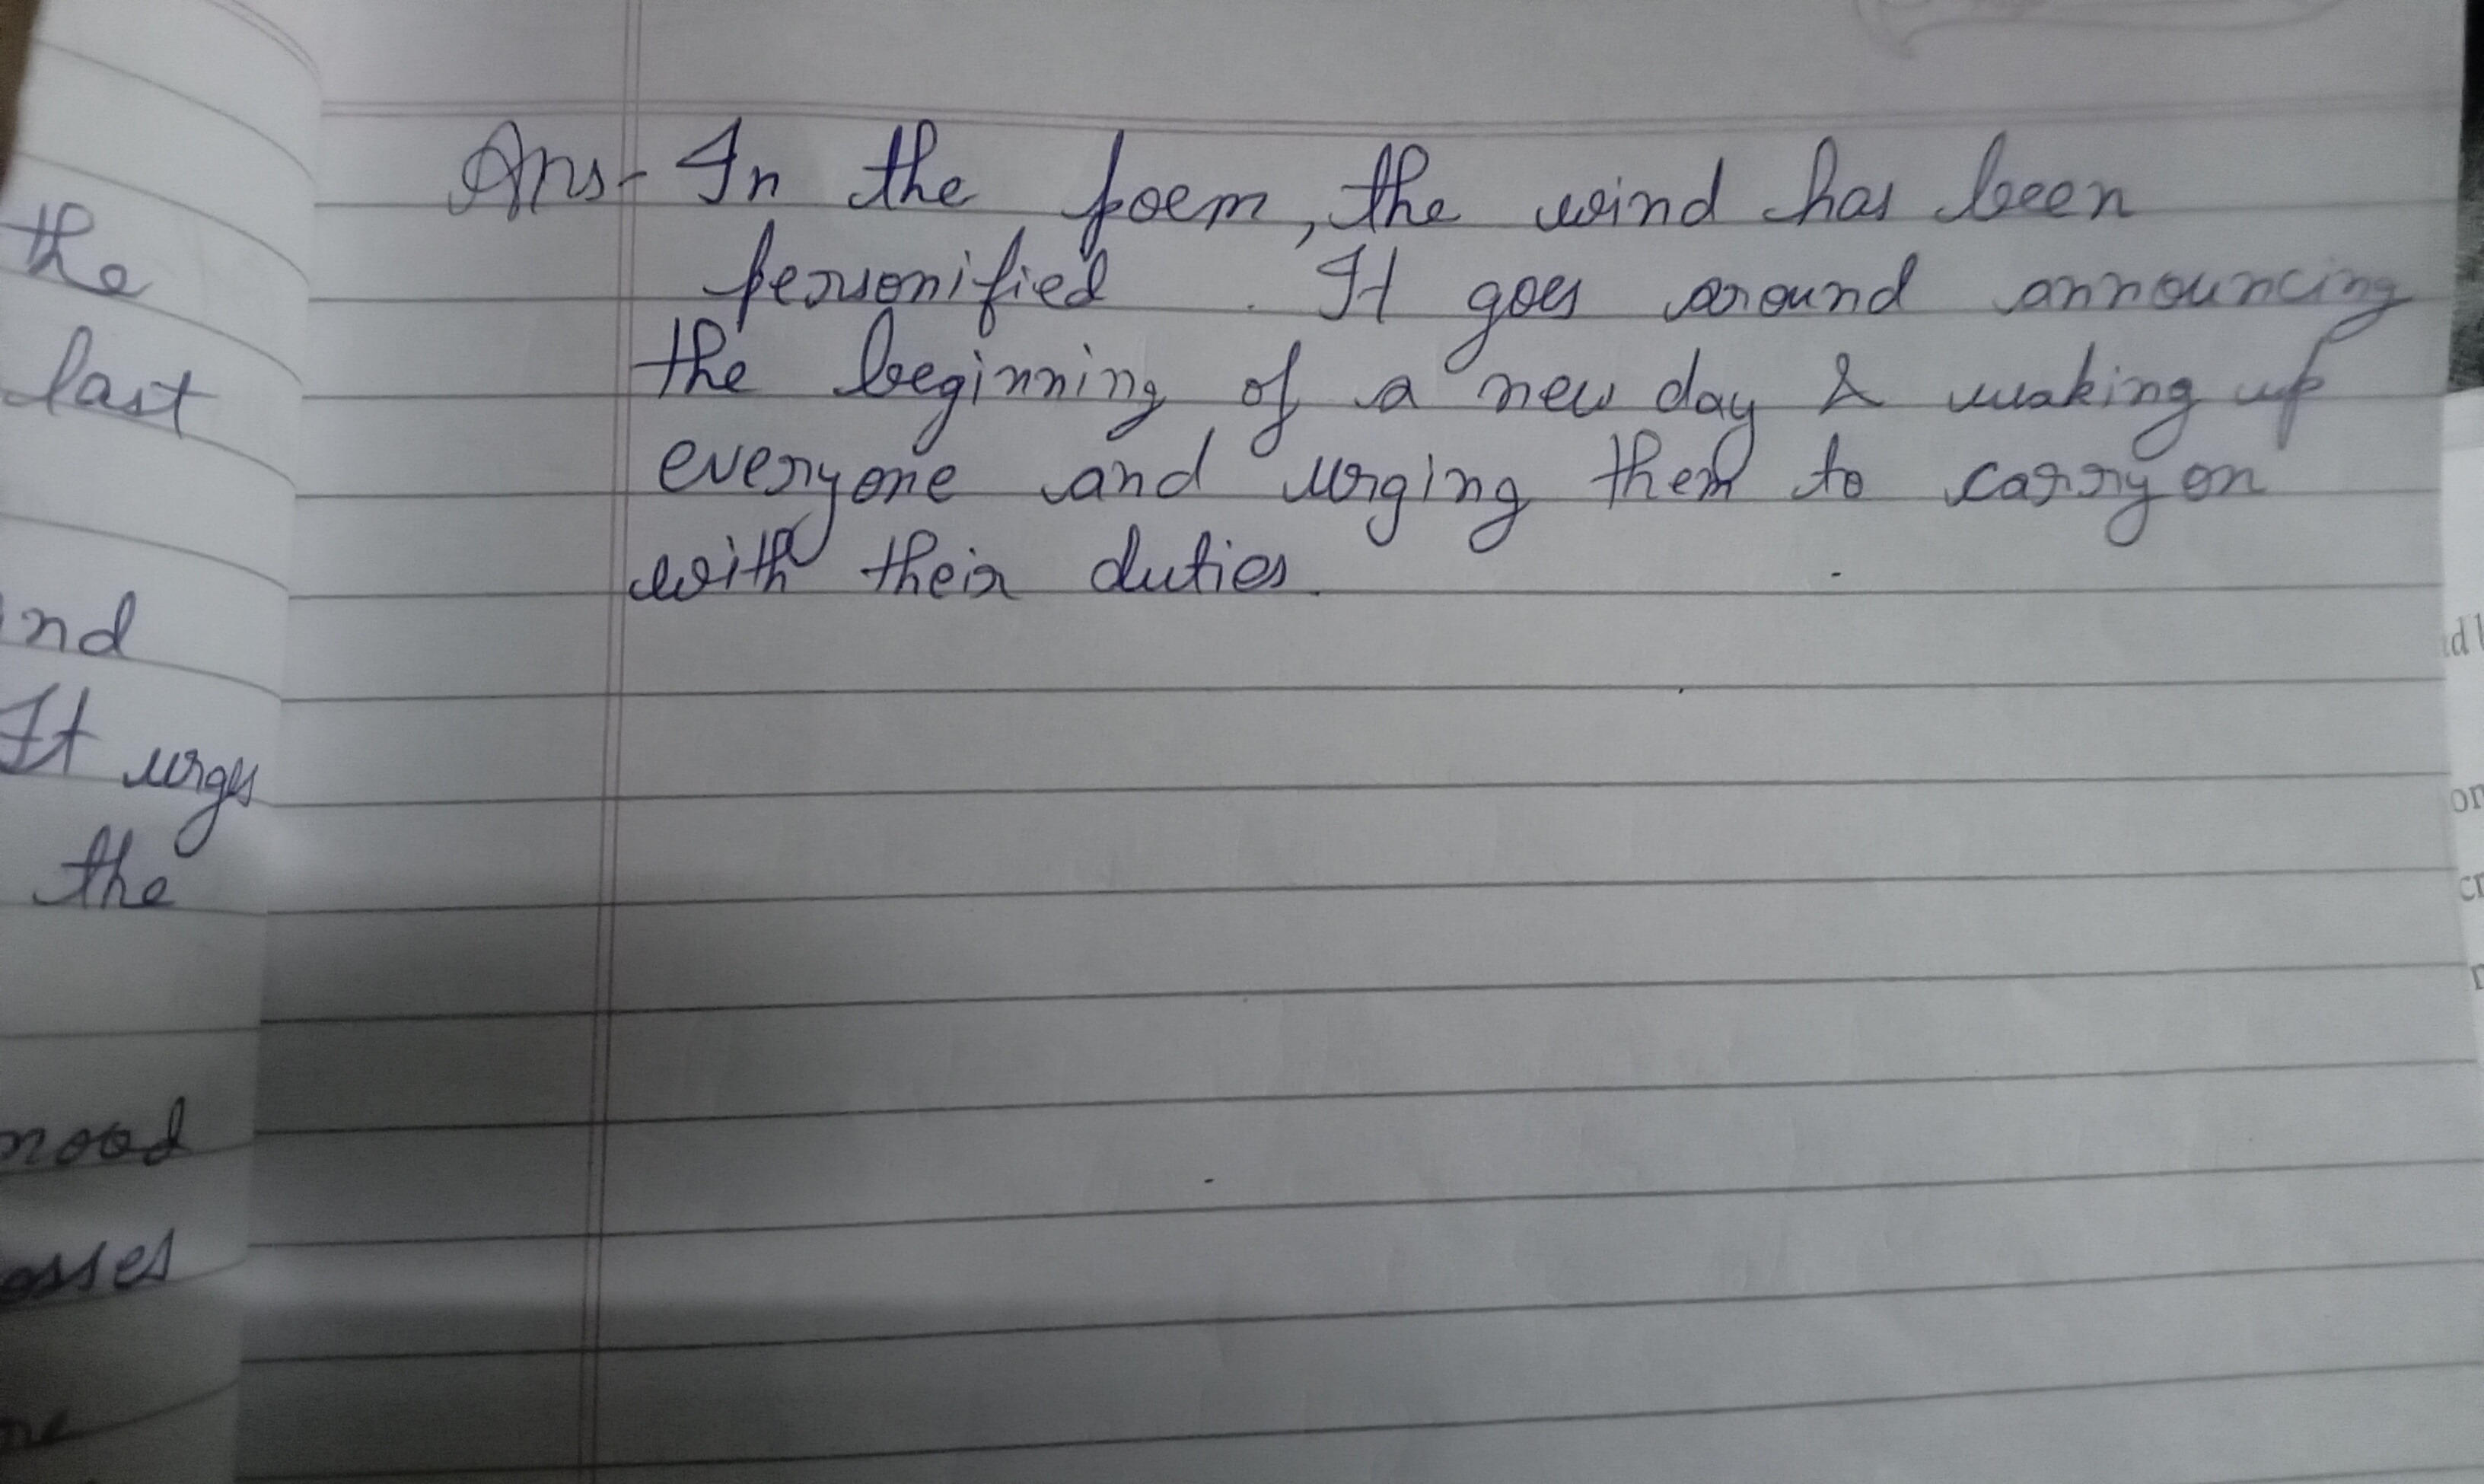 Ans- In the poem, the wind has been
personified. It goes around announcing
the beginning of a new day & waking up
everyone and urging them to carry on
with their duties.
the
last
nd
It urges
the
mood
osses